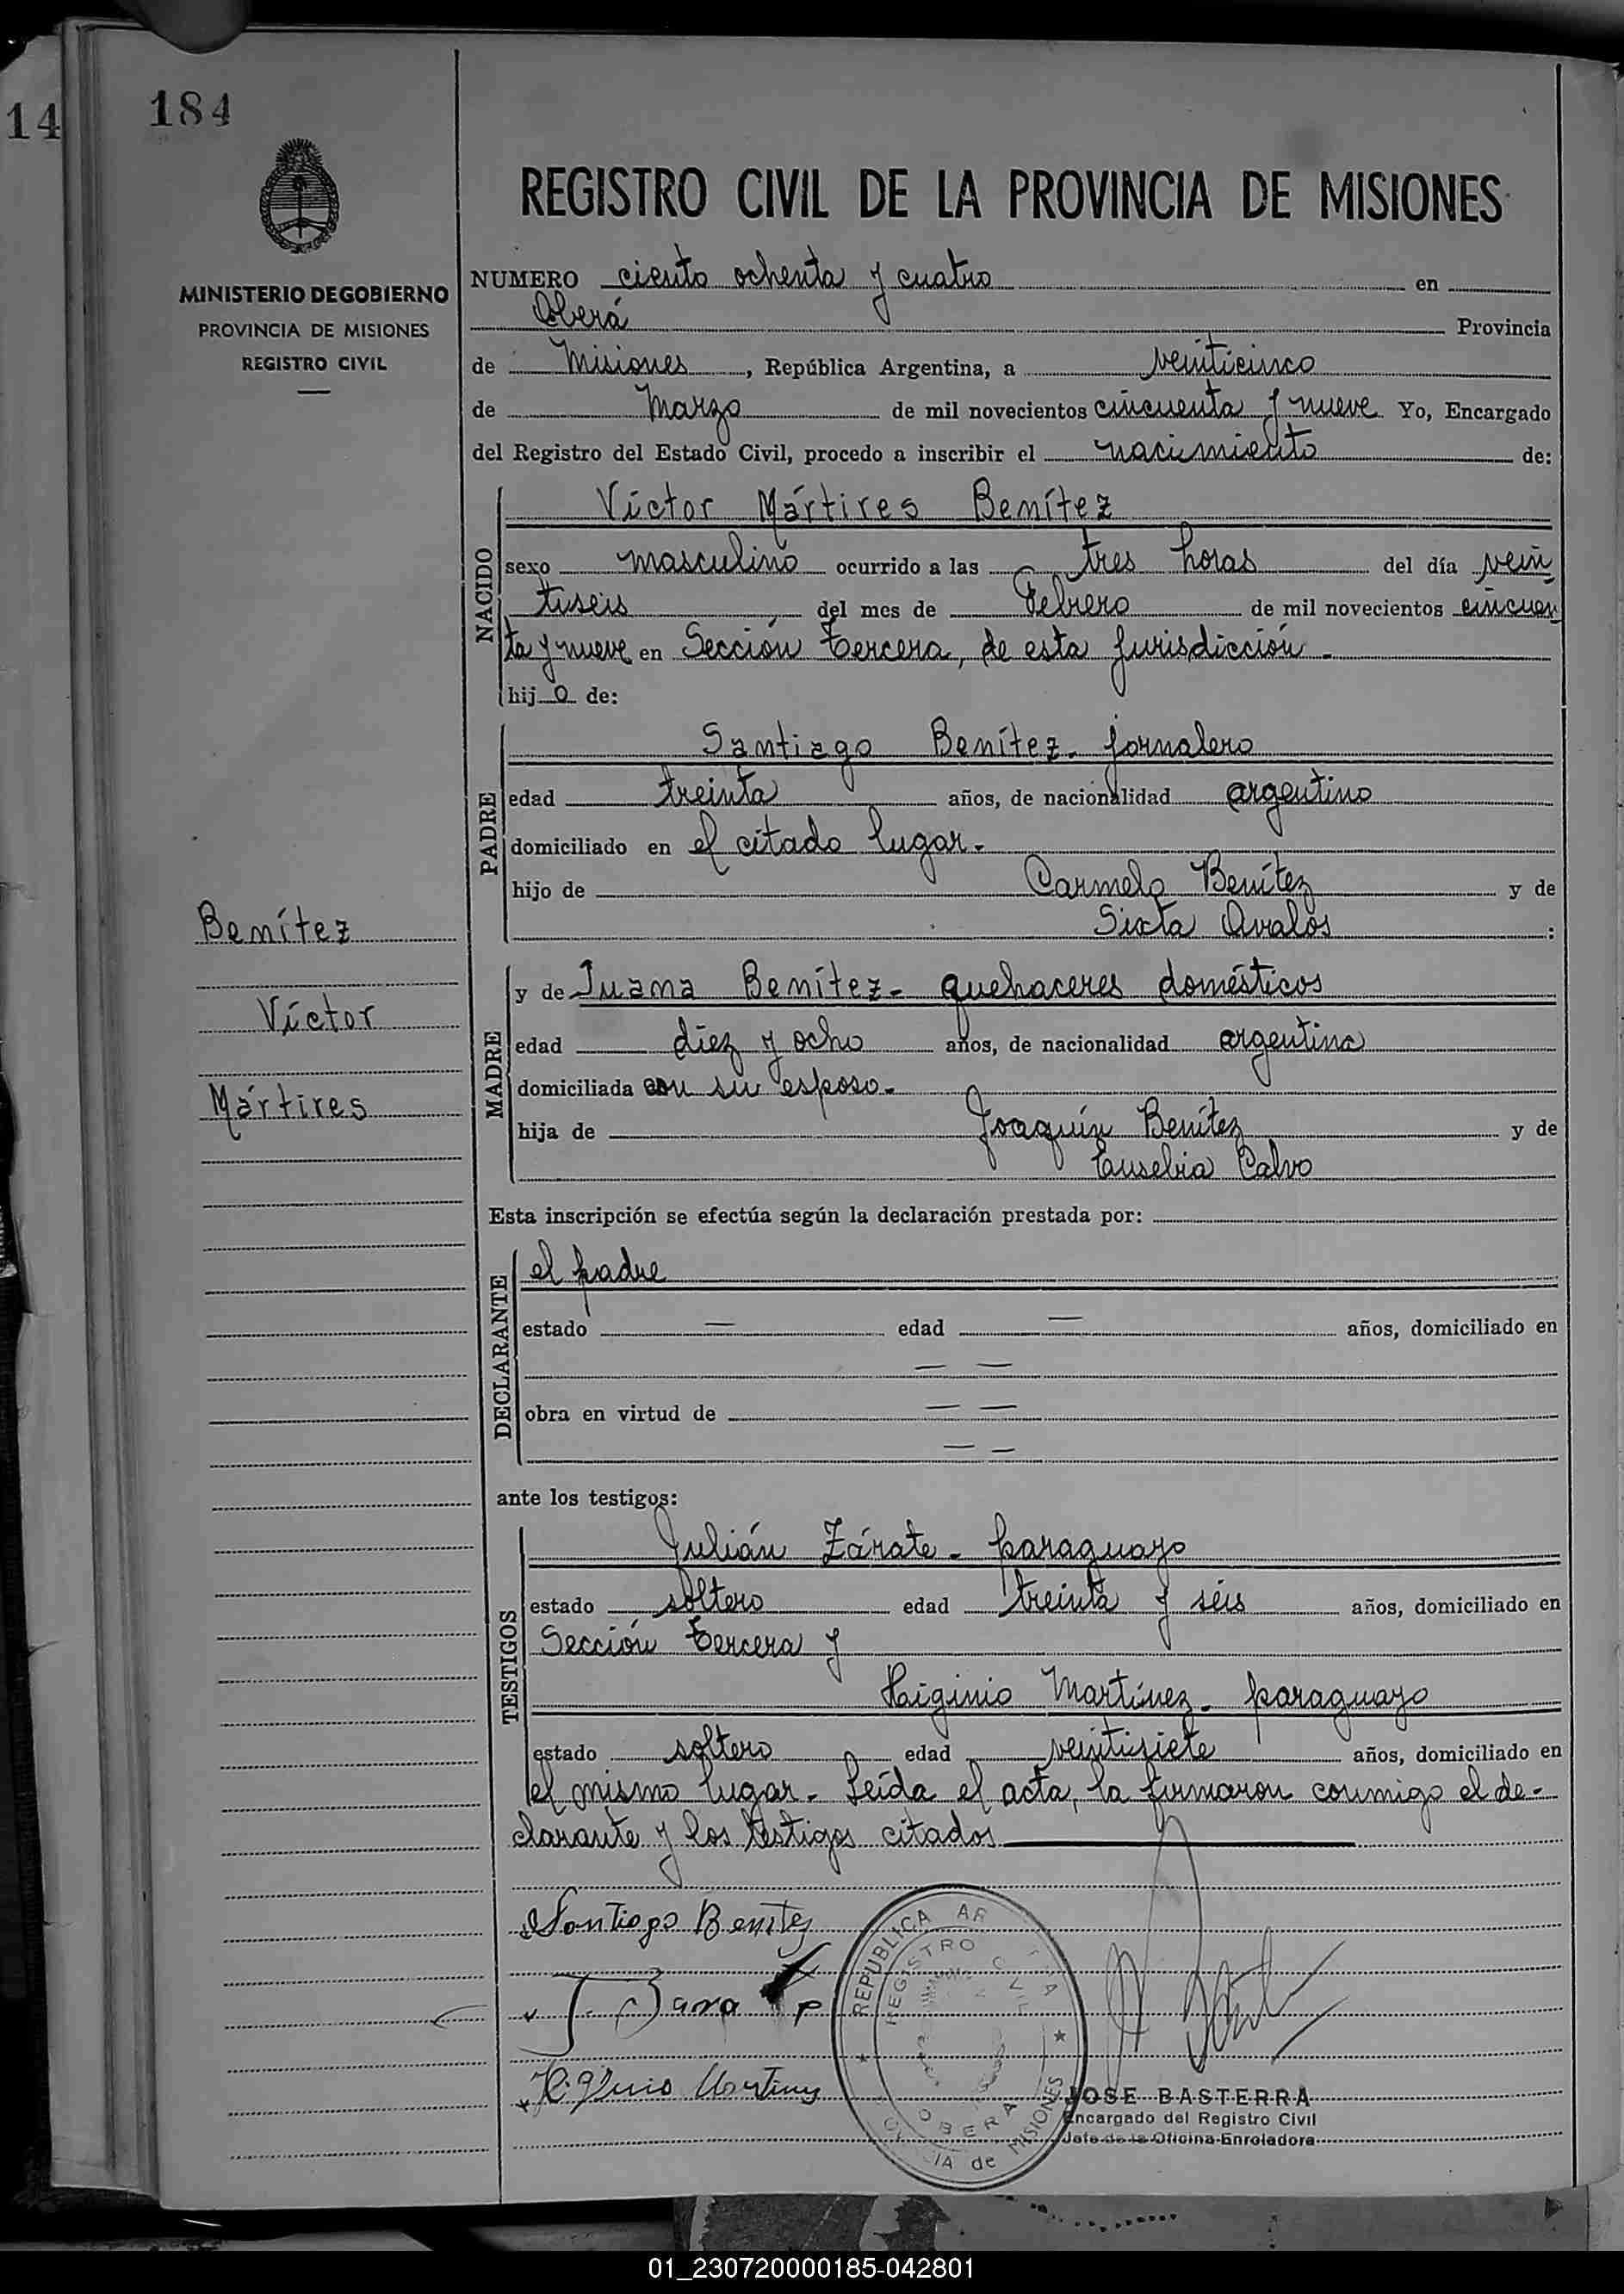 14
184
MINISTERIO DE GOBIERNO
PROVINCIA DE MISIONES
REGISTRO CIVIL
REGISTRO CIVIL DE LA PROVINCIA DE MISIONES
NUMERO ciento ochenta y cuatro en
Oberá Provincia
de Misiones, República Argentina, a veinticinco
de Marzo de mil novecientos cincuenta y nueve Yo, Encargado
del Registro del Estado Civil, procedo a inscribir el nacimiento de:
NACIDO
Víctor Mártires Benítez
sexo masculino ocurrido a las tres horas del día vein
tiseis del mes de Febrero de mil novecientos cincuen
ta y nueve en Sección Tercera, de esta jurisdicción.-
hijo de:
PADRE
Santiago Benítez- jornalero
edad treinta años, de nacionalidad argentino
domiciliado en el citado lugar.-
hijo de Carmelo Benítez y de
Sixta Avalos:
Benítez
Víctor
Mártires
MADRE
y de Juana Benítez- quehaceres domésticos
edad diez y ocho años, de nacionalidad argentina
domiciliada con su esposo.-
hija de Joaquín Benítez y de
Eusebia Calvo
Esta inscripción se efectúa según la declaración prestada por:
DECLARANTE
el padre
estado — edad — años, domiciliado en
— —
obra en virtud de — —
— —
ante los testigos:
TESTIGOS
Julián Zárate- paraguayo
estado soltero edad treinta y séis años, domiciliado en
Sección Tercera y
Higinio Martínez- paraguayo
estado soltero edad veintisiete años, domiciliado en
el mismo lugar.- Leída el acta, la firmaron conmigo el de-
clarante y los testigos citados
Santiago Benitez
Higinio Martinez
REPUBLICA AR
REGISTRO CIVIL
OBERA
MISIONES
de
JOSE BASTERRA
Encargado del Registro Civil
Jefe de la Oficina Enroladora
01_230720000185-042801